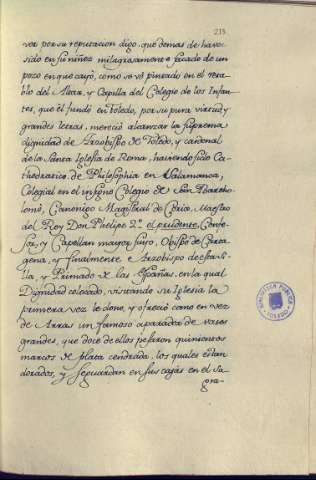 213
ver por su reputacion digo, que demas de haver
sido en su niñez milagrosamente sacado de un
pozo en que cayó, como se vé pintado en el reta-
blo del Altar, y Capilla del Colegio de los Infan-
tes, que él fundó en Toledo, por su pura virtud y
grandes letras, mereció alcanzar la suprema
dignidad de Arzobispo de Toledo, y cardenal
de la Santa Iglesia de Roma, haviendo sido Ca-
thedratico de Philosophia en Salamanca,
Colegial en el insigne Colegio de San Bartho-
lomé, Canonigo Magistral de Coria, Maestro
del Rey Don Phelipe 2º el prudente, Confe-
sor, y Capellan mayor suyo, Obispo de Carta-
gena, y finalmente Arzobispo de
la, y Primado de las Españas, en la qual
Dignidad colocado, visitando su Iglesia la
primera vez le dono, y ofreció como en vez
de Arras un famoso aparador de vasos
grandes, que doce de ellos pesaron quinientos
marcos de plata cendrada, los quales estan
dorados, y se guardan en sus cajas en el Sa-
gra-
BIBLIOTECA PUBLICA
TOLEDO